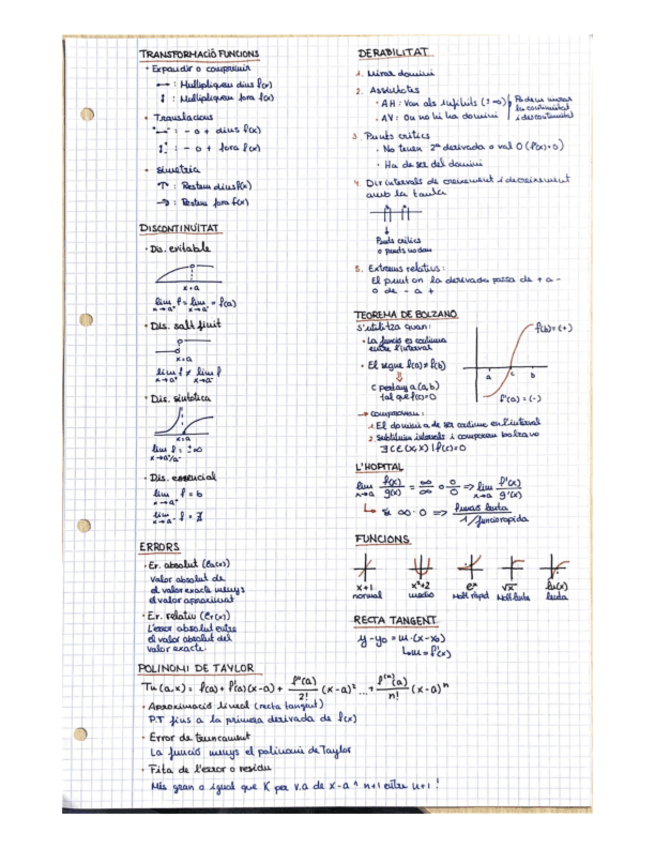 TRANSFORMACIÓ FUNCIONS
· Expandir o comprimir
↔ : Multipliquem dins f(x)
↕ : Multipliquem fora f(x)
· Translacions
: - o + dins f(x)
: - o + fora f(x)
· Simetria
: Restem dins f(x)
: Restem fora f(x)
DISCONTINUÏTAT
· Dis. evitable
x=a
lim f = lim = f(a)
x→a⁺ x→a⁻
· Dis. salt finit
x=a
lim f ≠ lim f
x→a⁺ x→a⁻
· Dis. asintòtica
x=a
lim f = ±∞
x→a⁺/a⁻
· Dis. essencial
lim f = b
x→a⁺
lim f = ∄
x→a⁻
ERRORS
· Er. absolut (Ea(x))
Valor absolut de
el valor exacte menys
el valor aproximat
· Er. relatiu (Er(x))
L'error absolut entre
el valor absolut del
valor exacte.
DERABILITAT
1. Mirar domini
2. Assímtotes
· AH: Van als infinits (?=0)
· AV: On no hi ha domini
Podem mirar
la continuïtat
i discontinuïtat
3. Punts crítics
· No tenen 2ª derivada o val 0 (f'(x)=0)
· Ha de ser del domini
4. Dir intervals de creixement i decreixement
amb la taula
Punts crítics
o punts no dom
5. Extrems relatius:
El punt on la derivada passa de + a -
o de - a +
TEOREMA DE BOLZANO
S'utilitza quan:
· La funció es continua
entre l'interval
· El segne f(a) ≠ f(b)
⇓
C pertany a (a,b)
tal que f(c)=0
f(b)=(+)
a c b
f'(a) = (-)
→ comprovem:
1. El domini a de ser continu en l'interval
2. Substituim intervals i comprovem bolzano
∃ C ∈ (x,x) | f(c)=0
L'HOPITAL
lim f(x)/g(x) = ∞/∞ o 0/0 ⇒ lim f'(x)/g'(x)
x→a x→a
↳ Si ∞·0 ⇒ funció lenta / 1/funció ràpida
FUNCIONS
x+1 x²+2 eˣ √x ln(x)
normal medio Molt ràpid Molt lenta lenta
RECTA TANGENT
y-y₀ = m·(x-x₀)
↳ m = f'(x)
POLINOMI DE TAYLOR
Tn(a,x) = f(a) + f'(a)(x-a) + f''(a)/2! (x-a)² ...+ f⁽ⁿ⁾(a)/n! (x-a)ⁿ
· Aproximació lineal (recta tangent)
P.T fins a la primera derivada de f(x)
· Error de truncament
La funció menys el polinomi de Taylor
· Fita de l'error o residu
Més gran o igual que K per v.a de x-a ^ n+1 entre n+1!